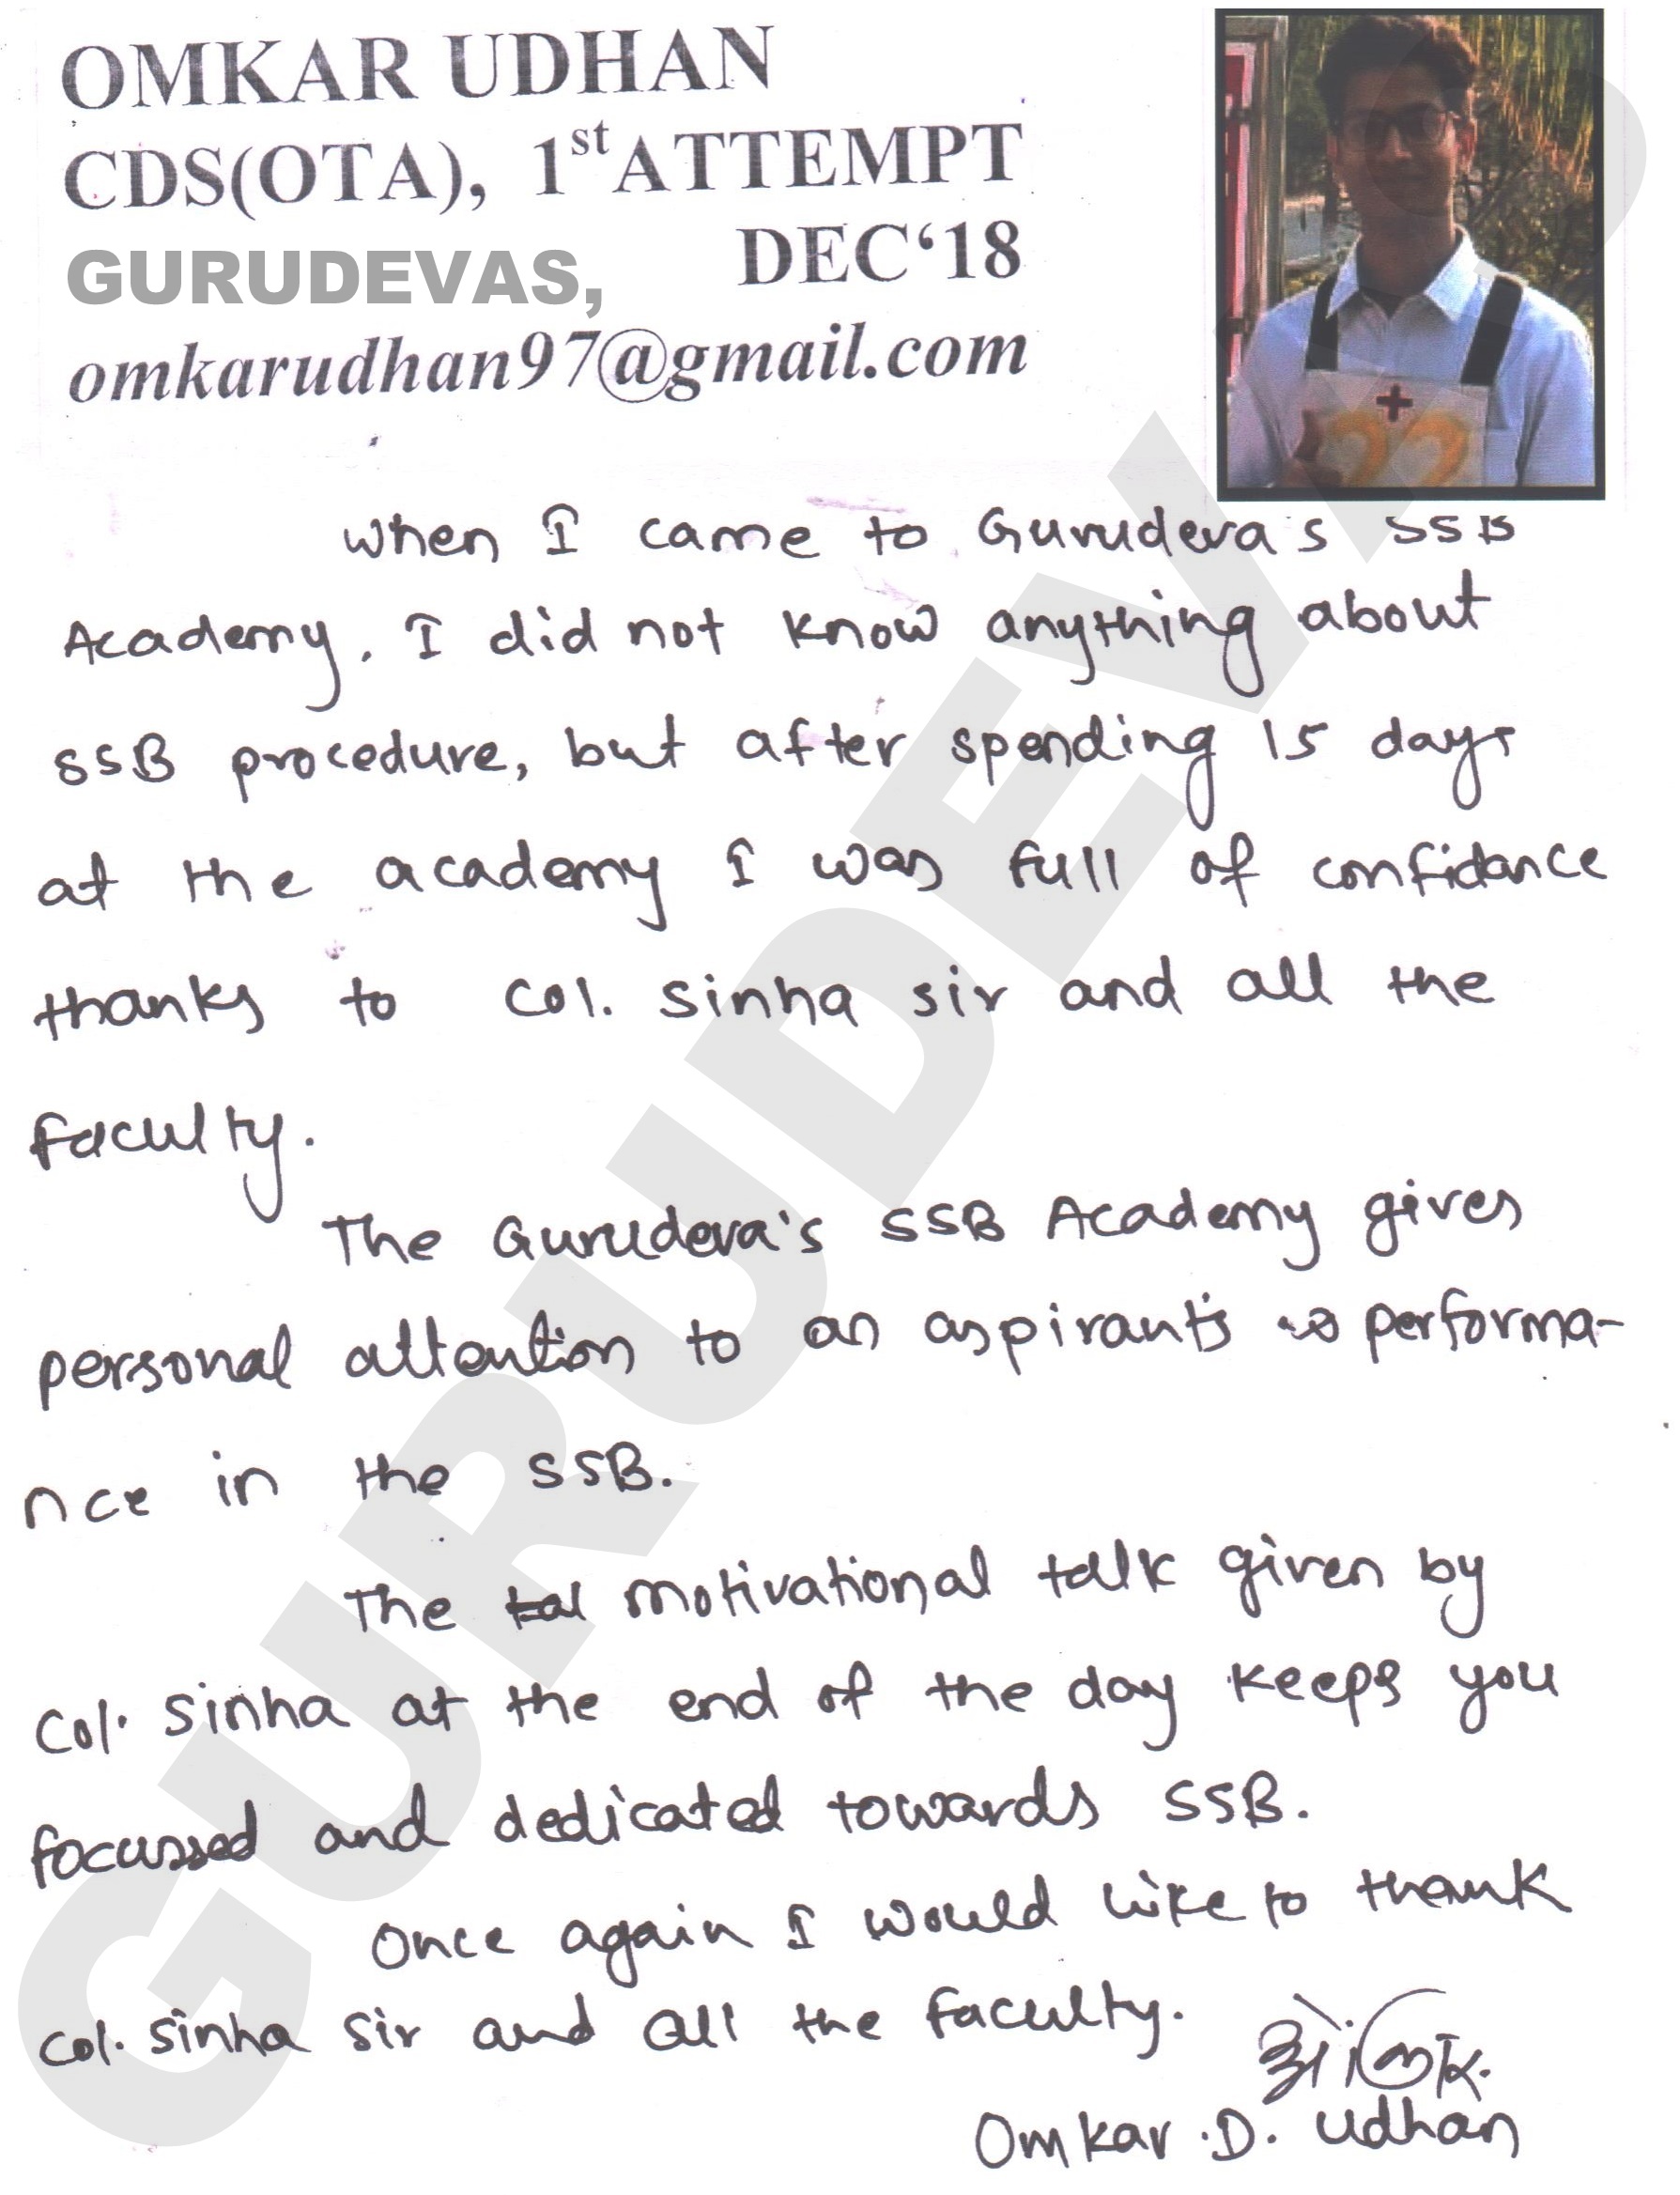 OMKAR UDHAN
CDS(OTA), 1st ATTEMPT
GURUDEVAS, DEC‘18
omkarudhan97@gmail.com
22
When I came to Gurudeva's SSB
Academy. I did not know anything about
SSB procedure, but after spending 15 days
at the academy I was full of confidance
thanks to Col. Sinha sir and all the
faculty.
The Gurudeva's SSB Academy gives
personal attention to an aspirant's performa-
nce in the SSB.
The tal motivational talk given by
Col. Sinha at the end of the day keeps you
focussed and dedicated towards SSB.
Once again I would like to thank
Col. Sinha Sir and all the faculty.
Omkar .D. Udhan
GURUDEVAS